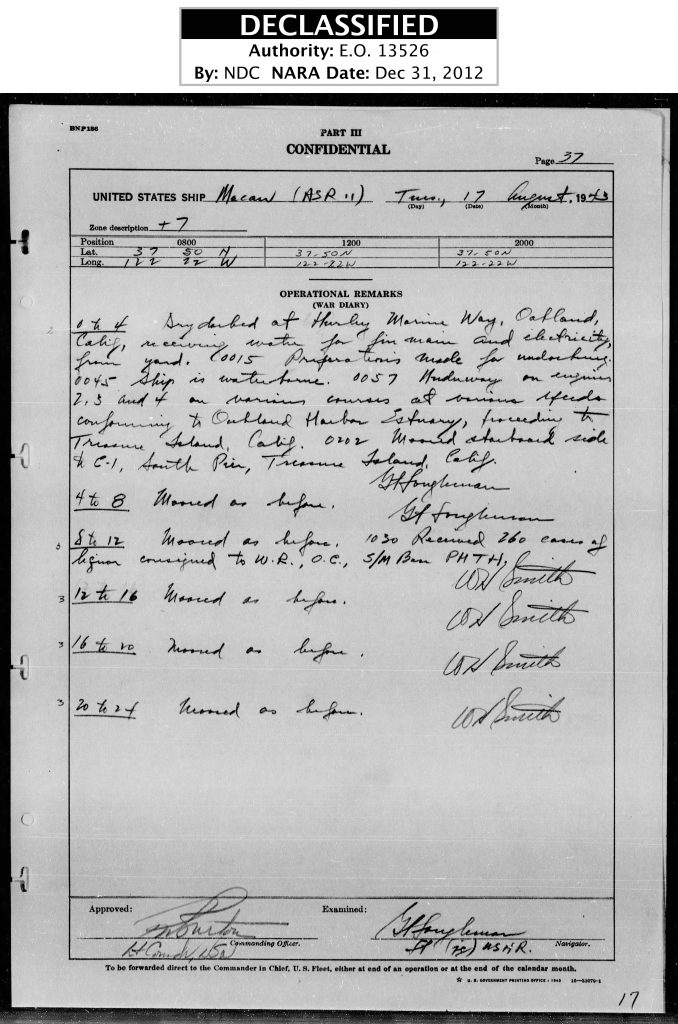 DECLASSIFIED
Authority: E.O. 13526
By: NDC NARA Date: Dec 31, 2012
BNP186
PART III
CONFIDENTIAL
Page 37
UNITED STATES SHIP Macaw (ASR 11) Tues., 17 August, 1943
(Day) (Date) (Month)
Zone description +7
Position 0800 1200 2000
Lat. 37 50 N 37-50N 37-50N
Long. 122 22 W 122-22W 122-22W
OPERATIONAL REMARKS
(WAR DIARY)
0 to 4 Drydocked at Hurley Marine Way, Oakland,
Calif, receiving water for fire main and electricity
from yard. 0015 Preparations made for undocking.
0045 Ship is waterborne. 0057 Underway on engines
2, 3 and 4 on various courses at various speeds
conforming to Oakland Harbor Estuary, proceeding to
Treasure Island, Calif. 0202 Moored starboard side
to C-1, South Pier, Treasure Island, Calif.
4 to 8 Moored as before.
8 to 12 Moored as before. 1030 Received 260 cases of
liquor consigned to W.R., O.C., S/M Base PHTH,
WH Smith
12 to 16 Moored as before.
WH Smith
3 16 to 20 Moored as before.
WH Smith
3 20 to 24 Moored as before.
WH Smith
Approved: Examined:
Lt Comdr, USN Commanding Officer. Lt (jg) USNR. Navigator.
To be forwarded direct to the Commander in Chief, U. S. Fleet, either at end of an operation or at the end of the calendar month.
U. S. GOVERNMENT PRINTING OFFICE : 1943
17